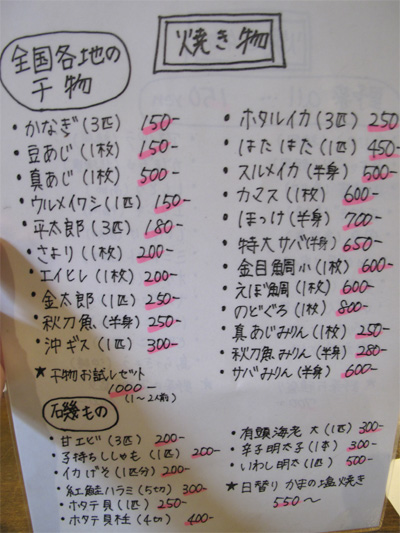 焼き物
全国各地の
干物
・かなぎ(3匹) 150-
・豆あじ(1枚) 150-
・真あじ(1枚) 500-
・ウルメイワシ(1匹) 150-
・平太郎(3匹) 180-
・さより(1枚) 200-
・エイヒレ(1枚) 200-
・金太郎(1匹) 250-
・秋刀魚(半身) 250-
・沖ギス(1匹) 300-
★干物お試しセット
1000-
(1〜2人前)
・ホタルイカ(3匹) 250
・はたはた(1匹) 450-
・スルメイカ(半身) 500-
・カマス(1枚) 600-
・ほっけ(半身) 700-
・特大サバ(半身) 650-
・金目鯛小(1枚) 600-
・えぼ鯛(1枚) 600-
・のどぐろ(1枚) 800-
・真あじみりん(1枚) 250-
・秋刀魚みりん(半身) 280-
・サバみりん(半身) 600-
磯もの
・甘エビ(3匹) 200-
・子持ちししゃも(1匹) 200-
・イカげそ(1匹分) 200-
・紅鮭ハラミ(5切) 300-
・ホタテ貝(1匹) 250-
・ホタテ貝柱(4切) 400-
・有頭海老 大(1匹) 300-
・辛子明太子(1本) 300-
・いわし明太(1匹) 500-
★日替り かまの塩焼き
550〜